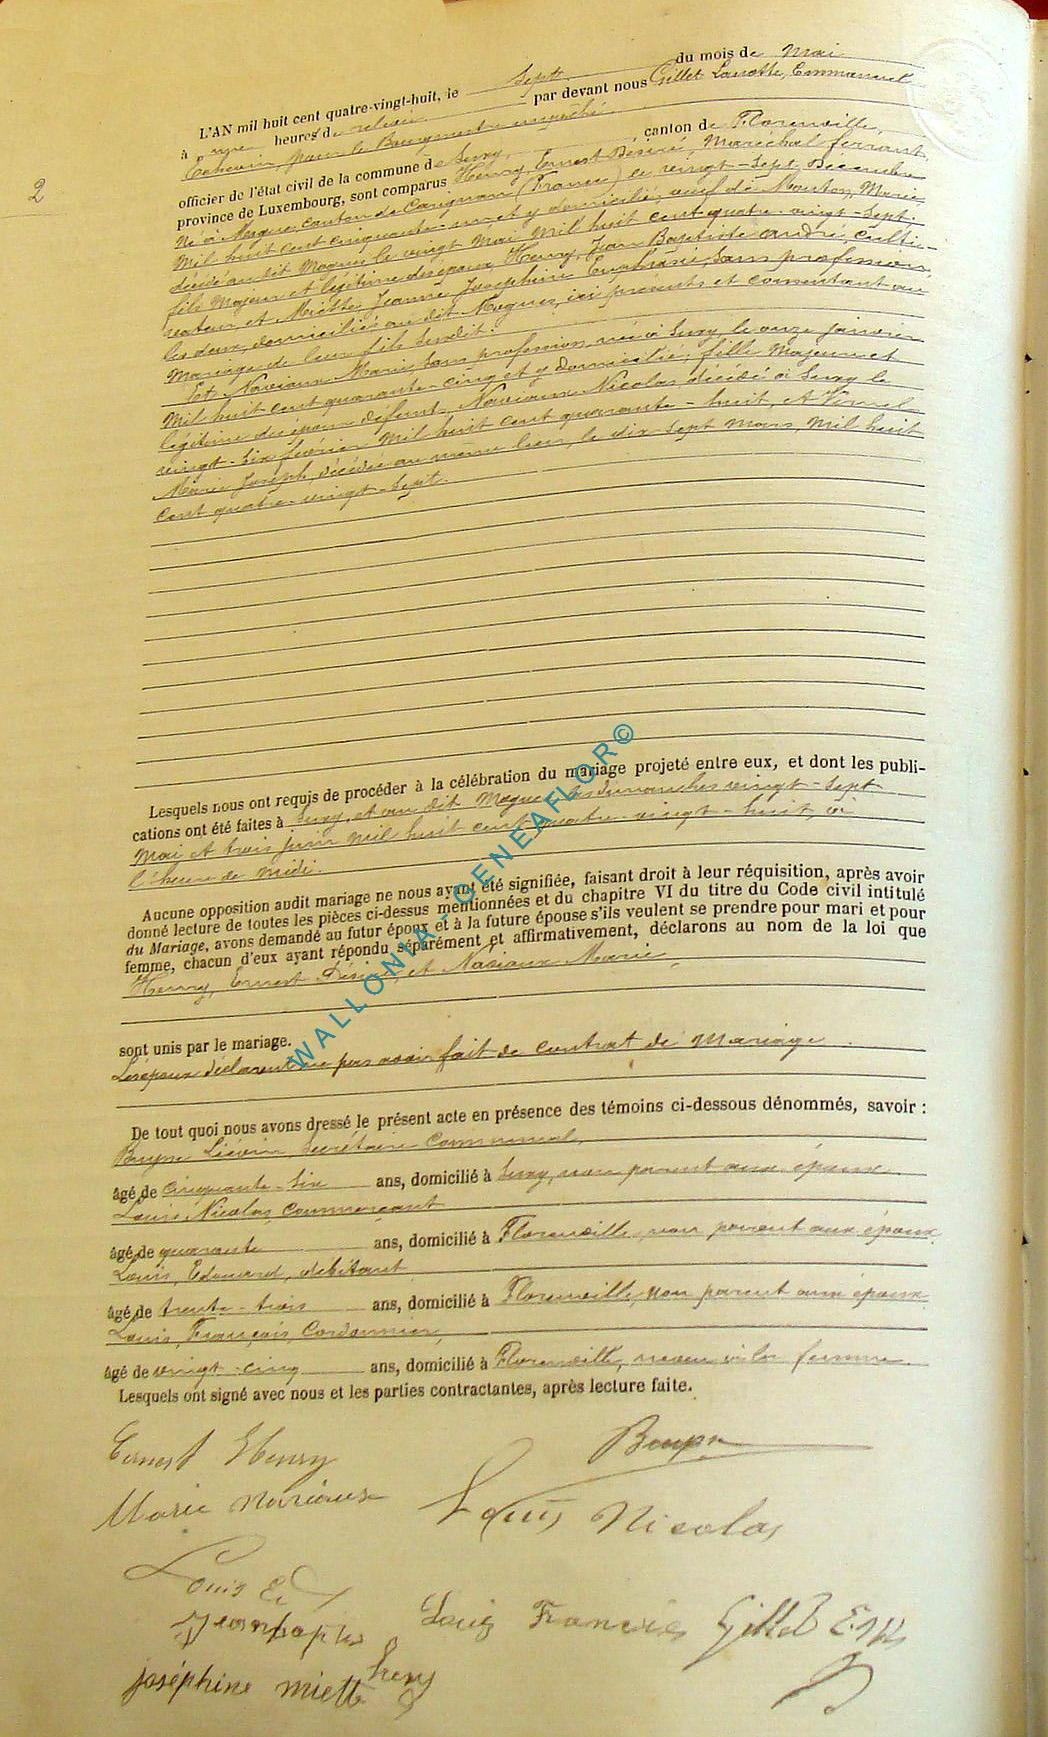 2
L'AN mil huit cent quatre-vingt-huit, le Sept du mois de Mai
à heures de relevée par devant nous Gillet Lanotte, Emmanuel
Echevin, pour le Bourgmestre empêché
officier de l'état civil de la commune de Suxy, canton de Florenville,
province de Luxembourg, sont comparus Henry, Ernest Désiré, Maréchal ferrant,
Né à Mogues, canton de Carignan (France) le vingt-Sept Décembre
Mil huit cent cinquante-un et y domicilié, veuf de Marie
décédée au dit Mogues le vingt Mai Mil huit cent quatre-vingt-Sept.
fils Majeur et légitime des époux Henry, Jean Baptiste André, culti-
vateur et Miette Jeanne Joséphine Euphrasie, Sans profession,
les deux domiciliés au dit Mogues, ici présents et consentant au
Mariage de leur fils Susdit.
Et Naviaux Marie, Sans profession, née à Suxy, le onze janvier
Mil huit cent quarante-cinq et y domiciliée; fille Majeure et
légitime des époux défunts Naviaux Nicolas décédé à Suxy le
vingt-Six février Mil huit cent quarante-huit, et
Marie Joseph, décédée au même lieu, le dix-Sept Mars, Mil huit
cent quatre-vingt-Sept.
Lesquels nous ont requis de procéder à la célébration du mariage projeté entre eux, et dont les publi-
cations ont été faites à Suxy, et au dit Mogues les dimanches vingt-Sept
Mai et trois juin Mil huit cent quatre-vingt-huit, à
l'heure de midi.
Aucune opposition audit mariage ne nous ayant été signifiée, faisant droit à leur réquisition, après avoir
donné lecture de toutes les pièces ci-dessus mentionnées et du chapitre VI du titre du Code civil intitulé
du Mariage, avons demandé au futur époux et à la future épouse s'ils veulent se prendre pour mari et pour
femme, chacun d'eux ayant répondu séparément et affirmativement, déclarons au nom de la loi que
Henry, Ernest Désiré, et Naviaux Marie,
sont unis par le mariage.
Les époux déclarent ne pas avoir fait de contrat de Mariage.
De tout quoi nous avons dressé le présent acte en présence des témoins ci-dessous dénommés, savoir :
Liévin Secrétaire Communal,
âgé de cinquante-Six ans, domicilié à Suxy, non parent aux époux
Louis Nicolas, Commerçant
âgé de quarante ans, domicilié à Florenville, non parent aux époux.
Louis, Edouard, débitant
âgé de trente-trois ans, domicilié à Florenville, non parent aux époux
Louis, François, Cordonnier,
âgé de vingt-cinq ans, domicilié à Florenville, neveu à la femme.
Lesquels ont signé avec nous et les parties contractantes, après lecture faite.
Ernest Henry
Marie Naviaux
Louis Nicolas
Louis Ed
Jean baptiste henry
Louis François
Gillet
joséphine miette
WALLONIA - GENEAFLOR©